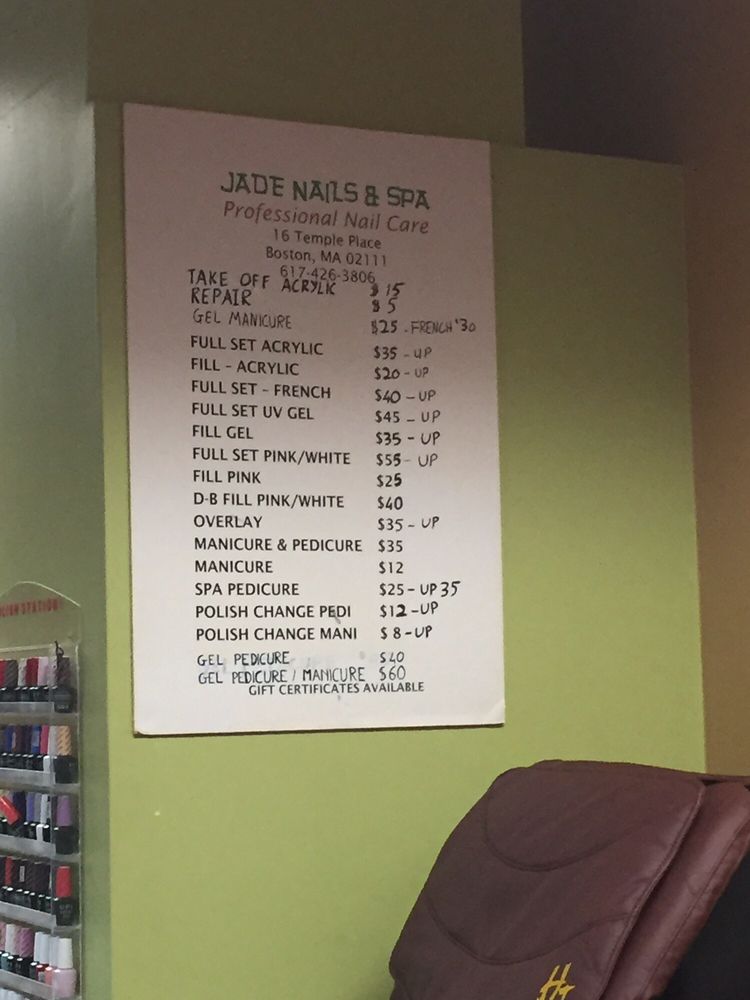 JADE NAILS & SPA
Professional Nail Care
16 Temple Place
Boston, MA 02111
617-426-3806
TAKE OFF ACRYLIC $15
REPAIR $5
GEL MANICURE $25 - FRENCH $30
FULL SET ACRYLIC $35 - UP
FILL - ACRYLIC $20 - UP
FULL SET - FRENCH $40 - UP
FULL SET UV GEL $45 - UP
FILL GEL $35 - UP
FULL SET PINK/WHITE $55 - UP
FILL PINK $25
D-B FILL PINK/WHITE $40
OVERLAY $35 - UP
MANICURE & PEDICURE $35
MANICURE $12
SPA PEDICURE $25 - UP 35
POLISH CHANGE PEDI $12 - UP
POLISH CHANGE MANI $8 - UP
GEL PEDICURE $40
GEL PEDICURE / MANICURE $60
GIFT CERTIFICATES AVAILABLE
STATION